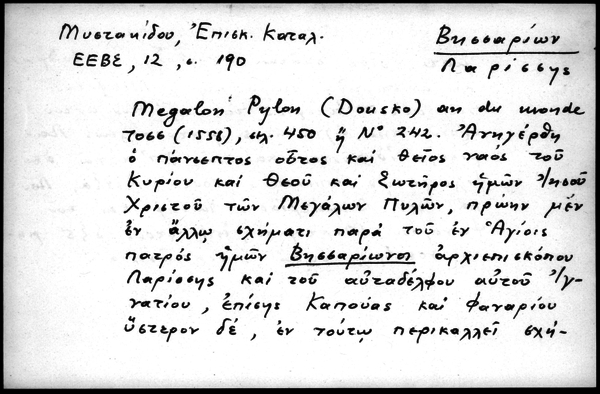 Μυστακίδου, Ἐπισκ. Καταλ.
ΕΕΒΣ, 12, σ. 190
Βησσαρίων
Λαρίσσης
Megalon Pylon (Dousko) an du monde
7066 (1558), σελ. 450 ἤ Nº 242. Ἀνηγέρθη
ὁ πάνσεπτος οὗτος καί θεῖος ναός τοῦ
Κυρίου καί Θεοῦ καί Σωτῆρος ἡμῶν Ἰησοῦ
Χριστοῦ τῶν Μεγάλων Πυλῶν, πρώην μέν
ἐν ἄλλῳ σχήματι παρά τοῦ ἐν Ἁγίοις
πατρός ἡμῶν Βησσαρίωνος ἀρχιεπισκόπου
Λαρίσσης καί τοῦ αὐταδέλφου αὐτοῦ Ἰγ-
νατίου, ἐπίσης Καπούας καί Φαναρίου
ὕστερον δέ, ἐν τούτῳ περικαλλεῖ σχή-